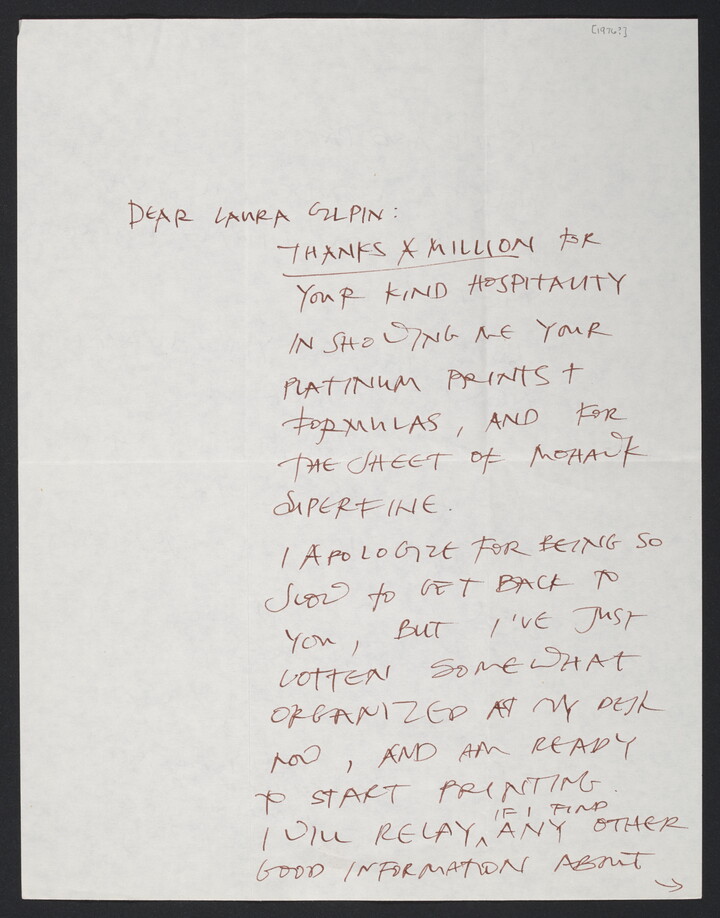 [1976?]
DEAR LAURA GILPIN:
THANKS A MILLION FOR
YOUR KIND HOSPITALITY
IN SHOWING ME YOUR
PLATINUM PRINTS +
FORMULAS, AND FOR
THE SHEET OF MOHAWK
SUPERFINE.
I APOLOGIZE FOR BEING SO
SLOW TO GET BACK TO
YOU, BUT I'VE JUST
GOTTEN SOMEWHAT
ORGANIZED AT MY DESK
NOW, AND AM READY
TO START PRINTING.
IF I FIND
I WILL RELAY, ^ ANY OTHER
GOOD INFORMATION ABOUT
→